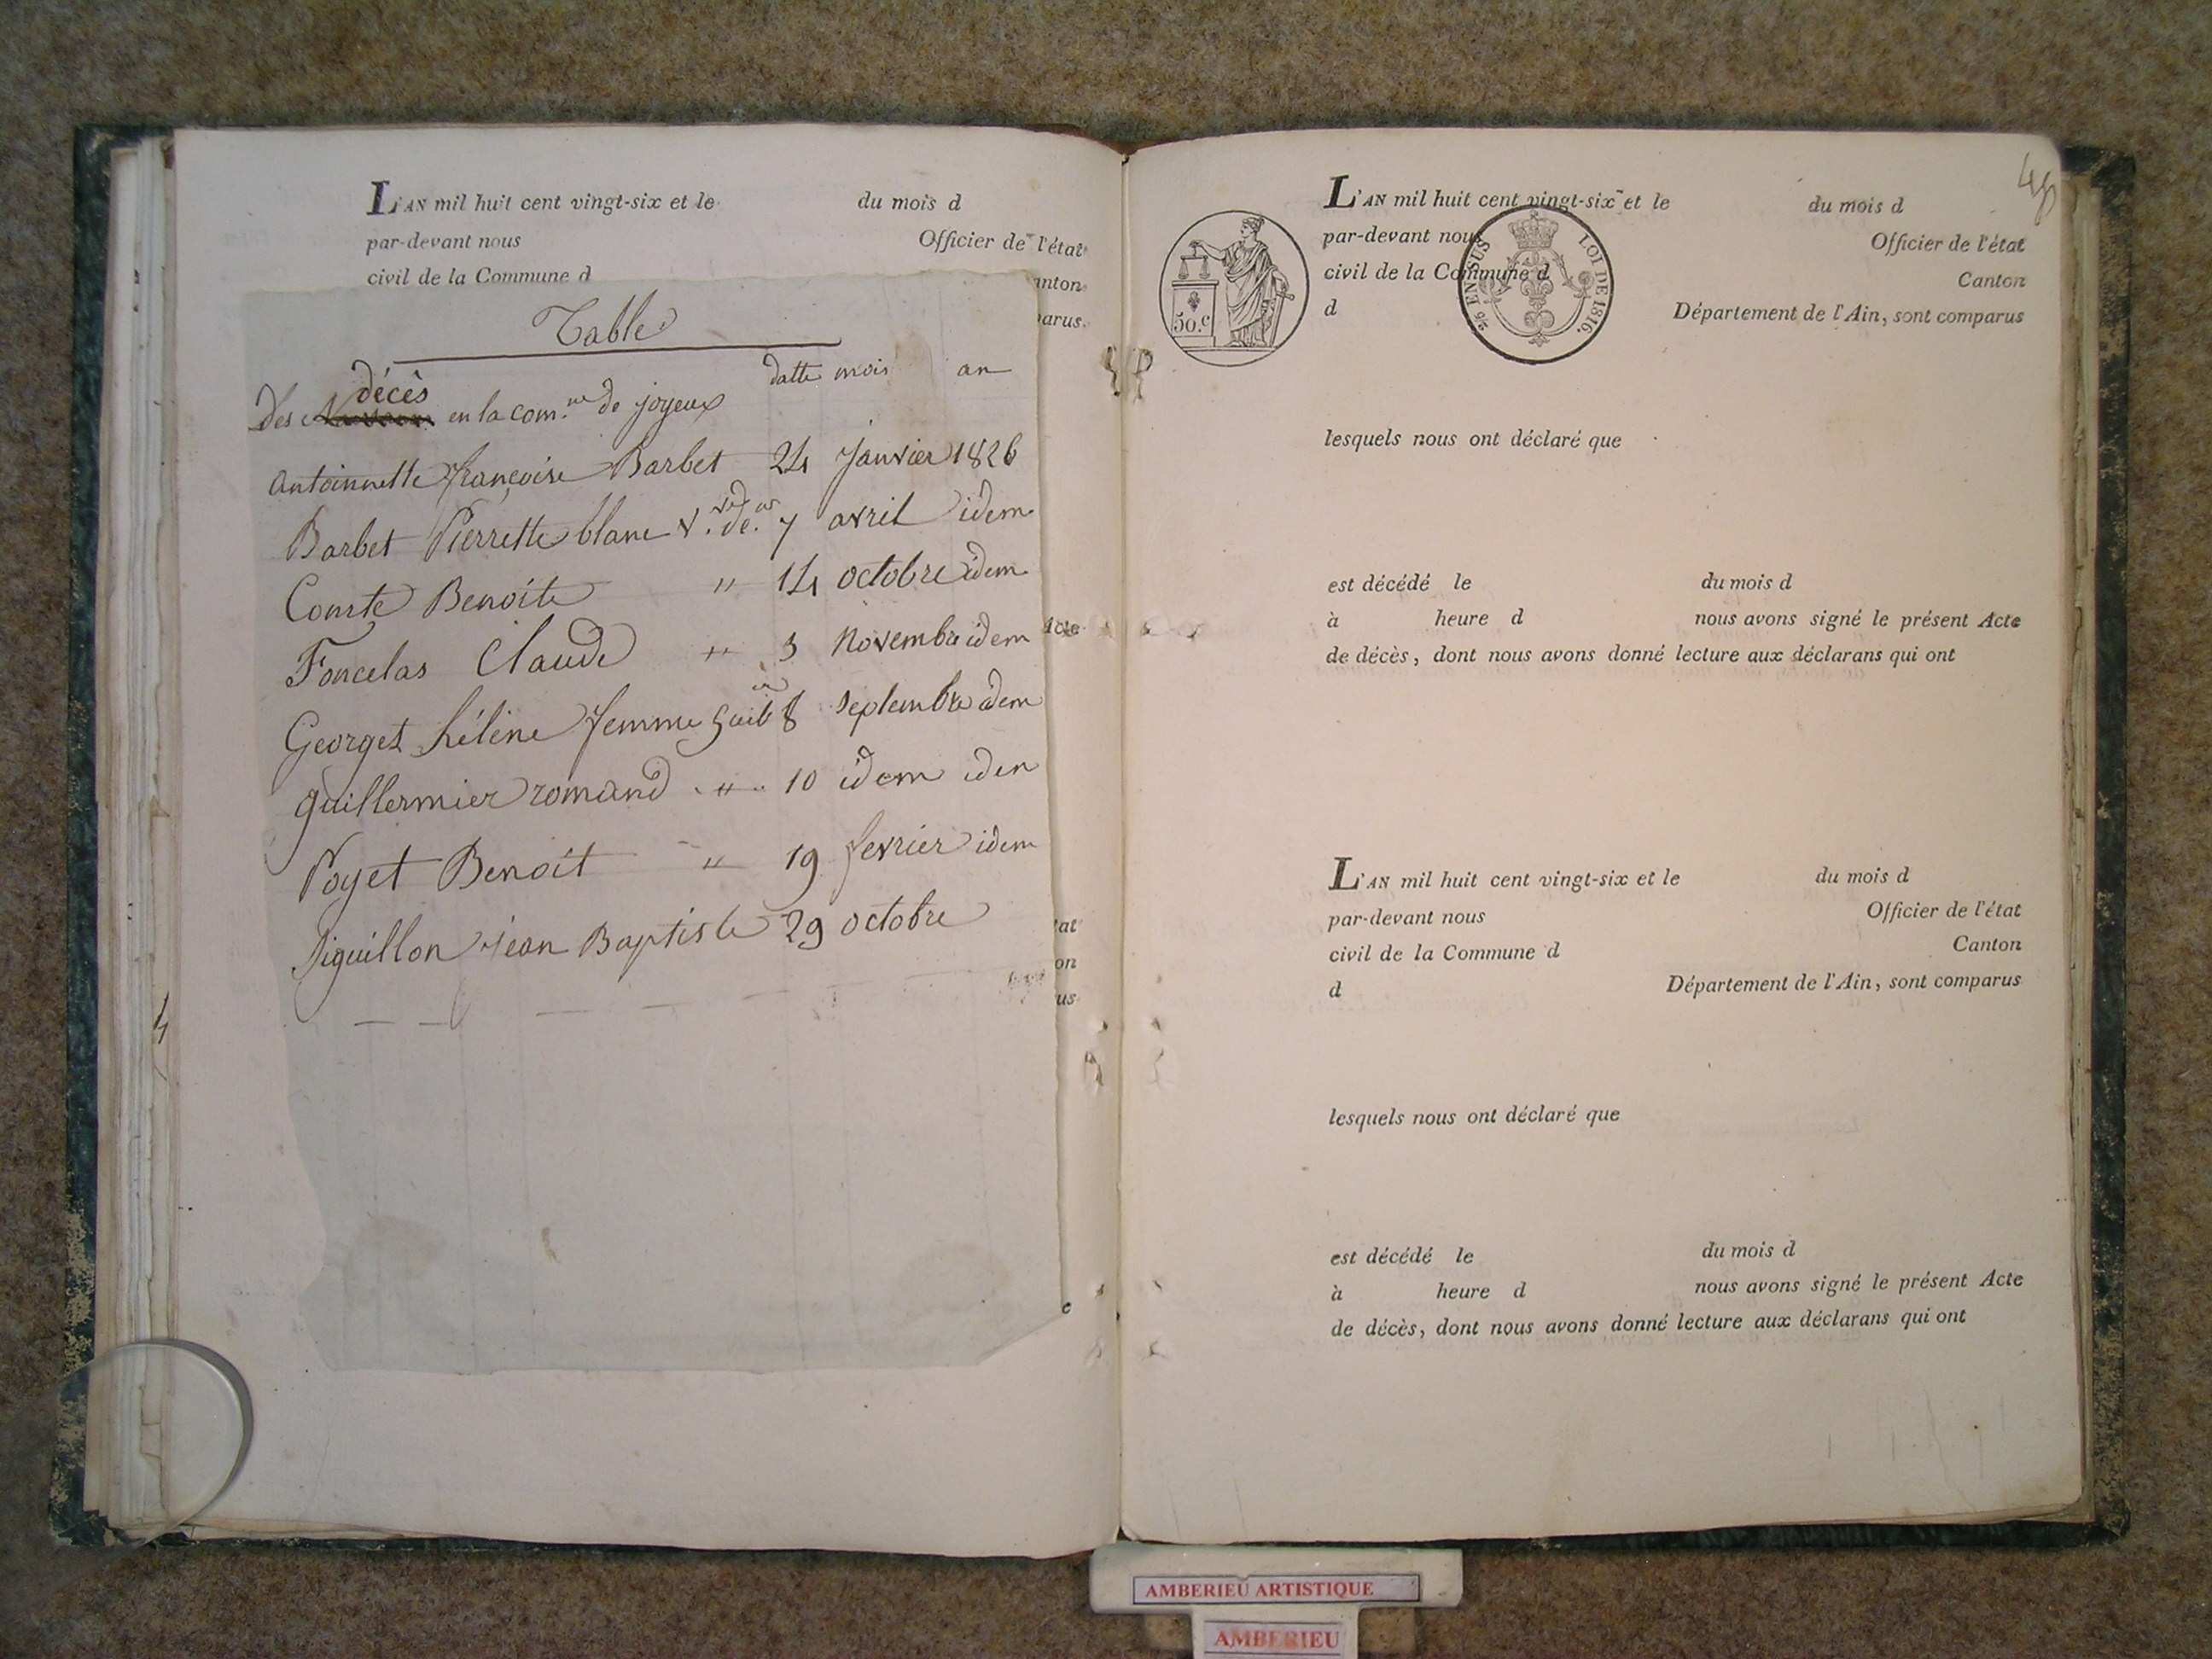 L'AN mil huit cent vingt-six et le du mois d
par-devant nous Officier de l'état
civil de la Commune d
anton
arus.
Table
datte mois an
décès
Des en la com.ne de joyeux
antoinnette françoise Barbet 24 Janvier 1826
Barbet Pierrette blanc V. de. 7 avril idem
Comte Benoite " 14 octobre idem
Foncelas Claude " 3 Novembre idem
Acte
Georget hélène femme Guil 8 septembre idem
guillermier romand " 10 idem iden
Poyet Benoit " 19 fevrier idem
Piguillon jean Baptiste 29 octobre
tat
on
us
e
4
L'AN mil huit cent vingt-six et le du mois d
par-devant nous Officier de l'état
civil de la Commune d Canton
d Département de l'Ain, sont comparus
50.c
2/6 EN SUS
LOI DE 1816.
lesquels nous ont déclaré que
est décédé le du mois d
à heure d nous avons signé le présent Acte
de décès, dont nous avons donné lecture aux déclarans qui ont
L'AN mil huit cent vingt-six et le du mois d
par-devant nous Officier de l'état
civil de la Commune d Canton
d Département de l'Ain, sont comparus
lesquels nous ont déclaré que
est décédé le du mois d
à heure d nous avons signé le présent Acte
de décès, dont nous avons donné lecture aux déclarans qui ont
AMBERIEU ARTISTIQUE
AMBERIEU